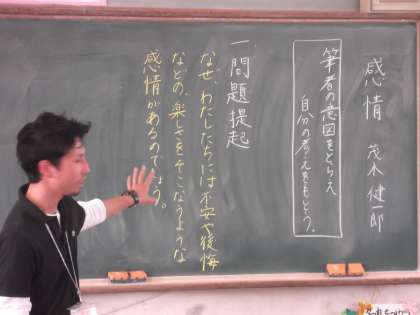 感情 茂木健一郎
筆者の意図をとらえ
自分の考えをもとう。
一 問題提起
なぜ、わたしたちには不安や後悔
などの、楽しさをそこなうような
感情があるのでしょう。